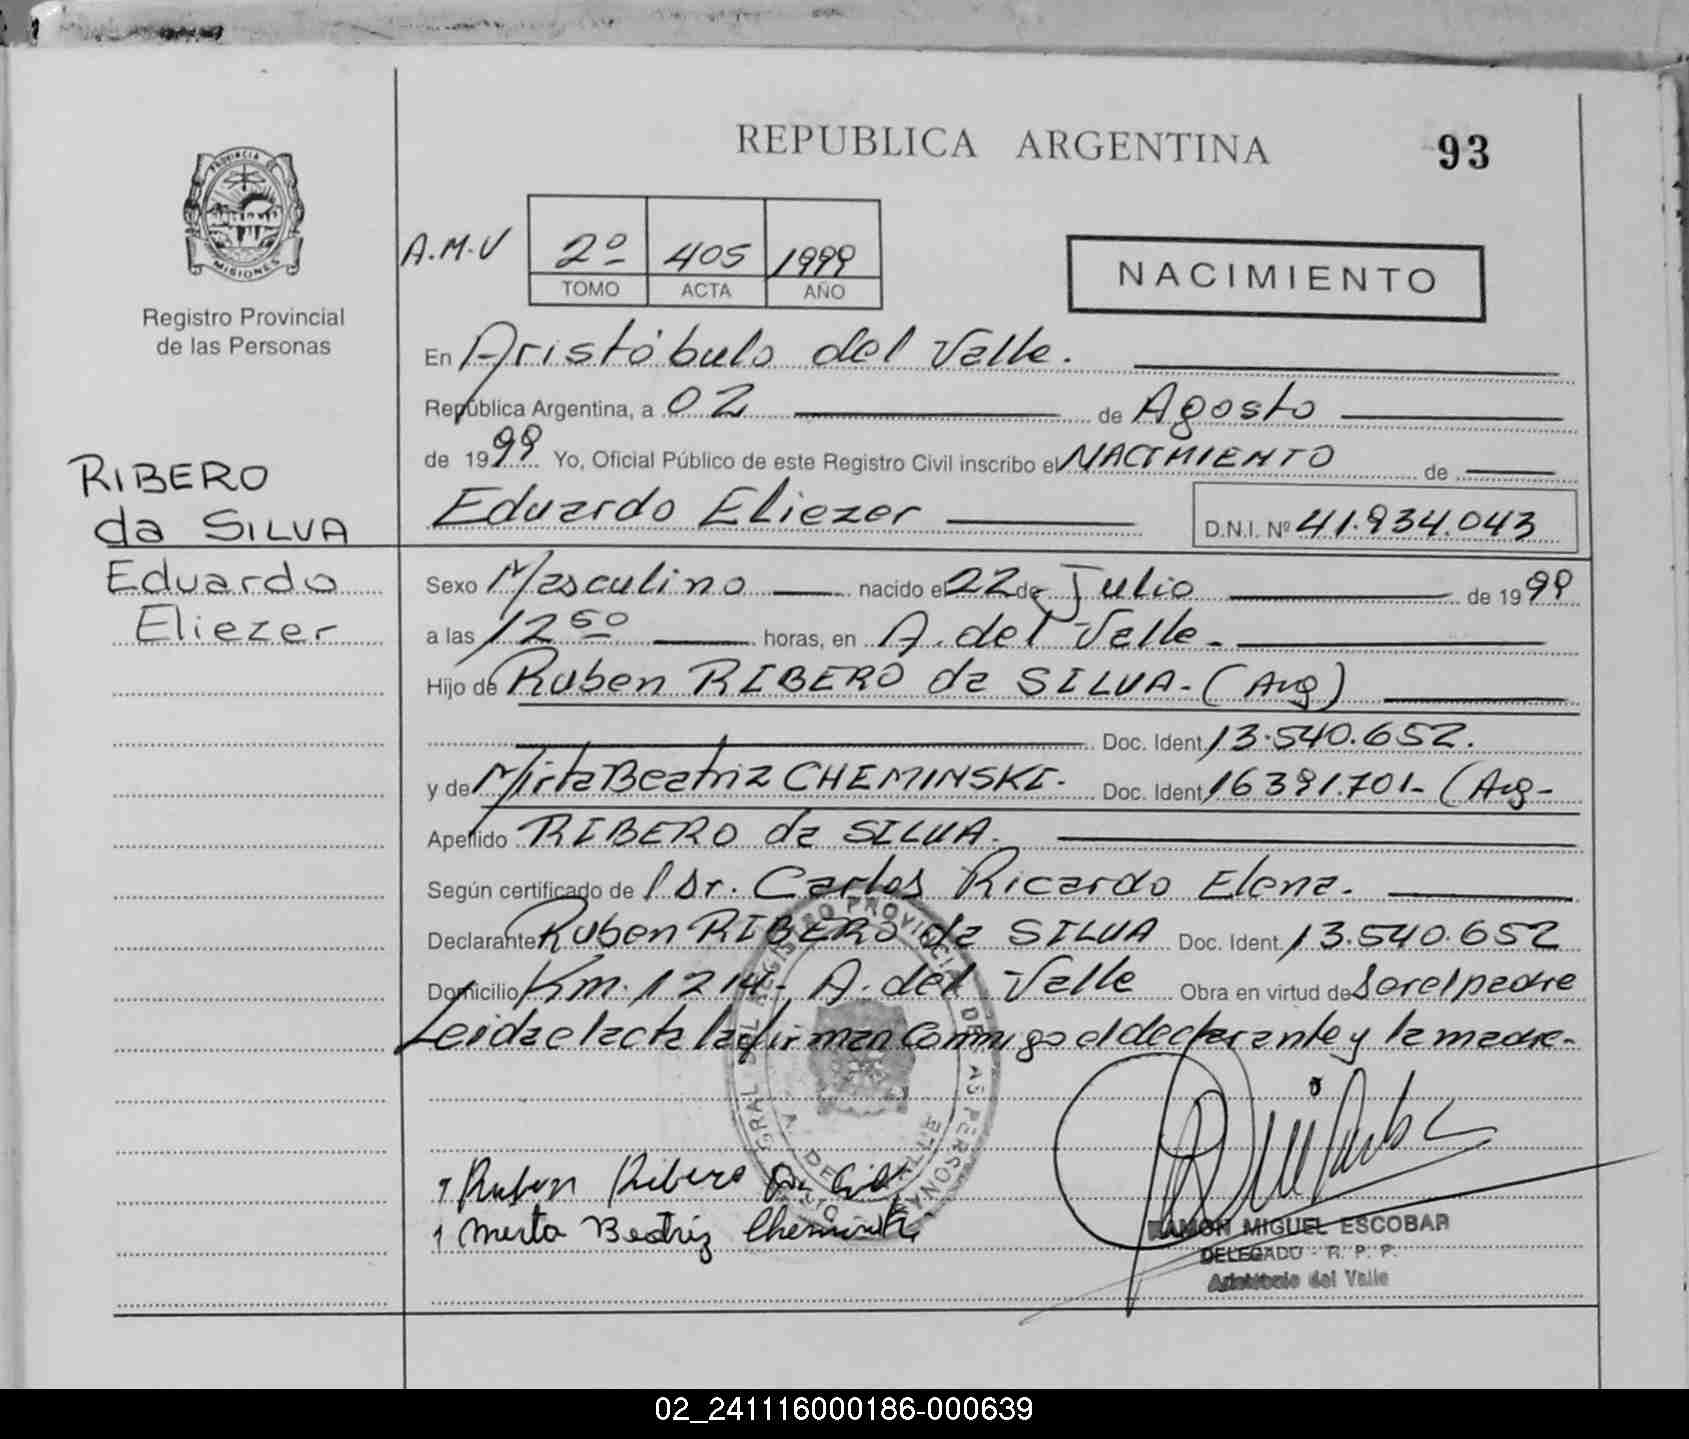 REPUBLICA ARGENTINA
93
PROVINCIA DE
MISIONES
Registro Provincial
de las Personas
A.M.V
2º 405 1999
TOMO ACTA AÑO
NACIMIENTO
En Aristóbulo del Valle.
República Argentina, a 02 de Agosto
de 1999 Yo, Oficial Público de este Registro Civil inscribo el NACIMIENTO de
Eduardo Eliezer D.N.I. Nº 41.934.043
RIBERO
da SILVA
Eduardo
Eliezer
Sexo Masculino nacido el 22 de Julio de 1999
a las 12 50 horas, en A. del Valle.
Hijo de Ruben RIBERO da SILVA - (Arg)
Doc. Ident. 13.540.652.
y de Mirta Beatriz CHEMINSKI. Doc. Ident. 16391.701- (Arg-
Apellido RIBERO da SILVA.
Según certificado de l Dr. Carlos Ricardo Elena.
Declarante Ruben RIBERO da SILVA Doc. Ident. 13.540.652
Domicilio Km. 1214 - A. del Valle Obra en virtud de Ser el padre
Leida el acta la firman conmigo el declarante y la madre.
Ruben Ribero Da
Mirta Beatriz Cheminski
RAMON MIGUEL ESCOBAR
DELEGADO - R. P. P.
Aristóbulo del Valle
02_241116000186-000639